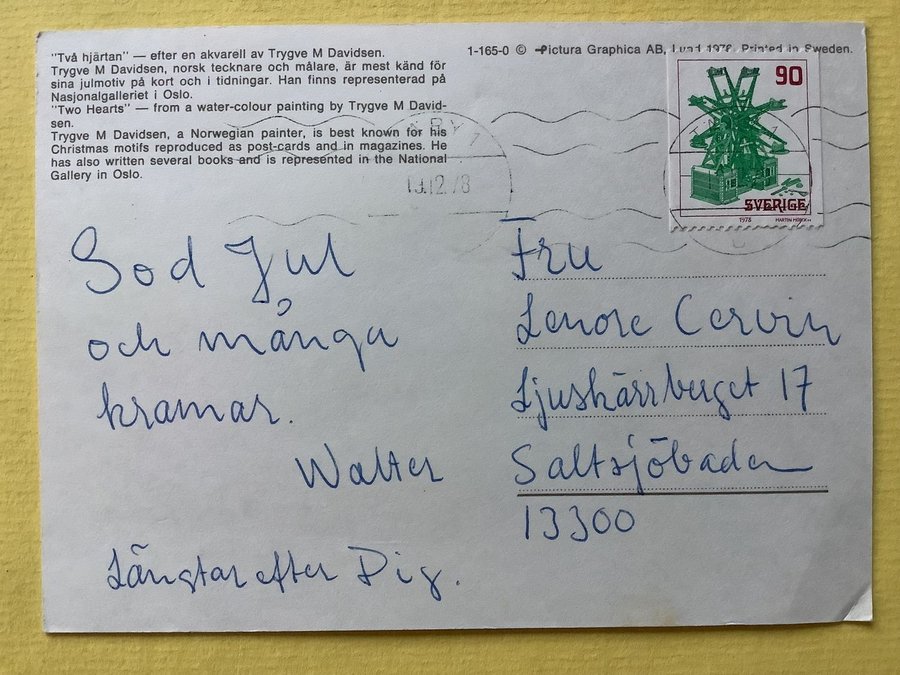 "Två hjärtan" — efter en akvarell av Trygve M Davidsen.
Trygve M Davidsen, norsk tecknare och målare, är mest känd för
sina julmotiv på kort och i tidningar. Han finns representerad på
Nasjonalgalleriet i Oslo.
"Two Hearts" — from a water-colour painting by Trygve M David-
sen.
Trygve M Davidsen, a Norwegian painter, is best known for his
Christmas motifs reproduced as post-cards and in magazines. He
has also written several books and is represented in the National
Gallery in Oslo.
1-165-0 © Pictura Graphica AB, Lund 1978. Printed in Sweden.
90
SVERIGE
1978
12 78
God Jul
och många
kramar.
Walter
Längtar efter Dig.
Fru
Lenore Cervin
Ljuskärrberget 17
Saltsjöbaden
13300